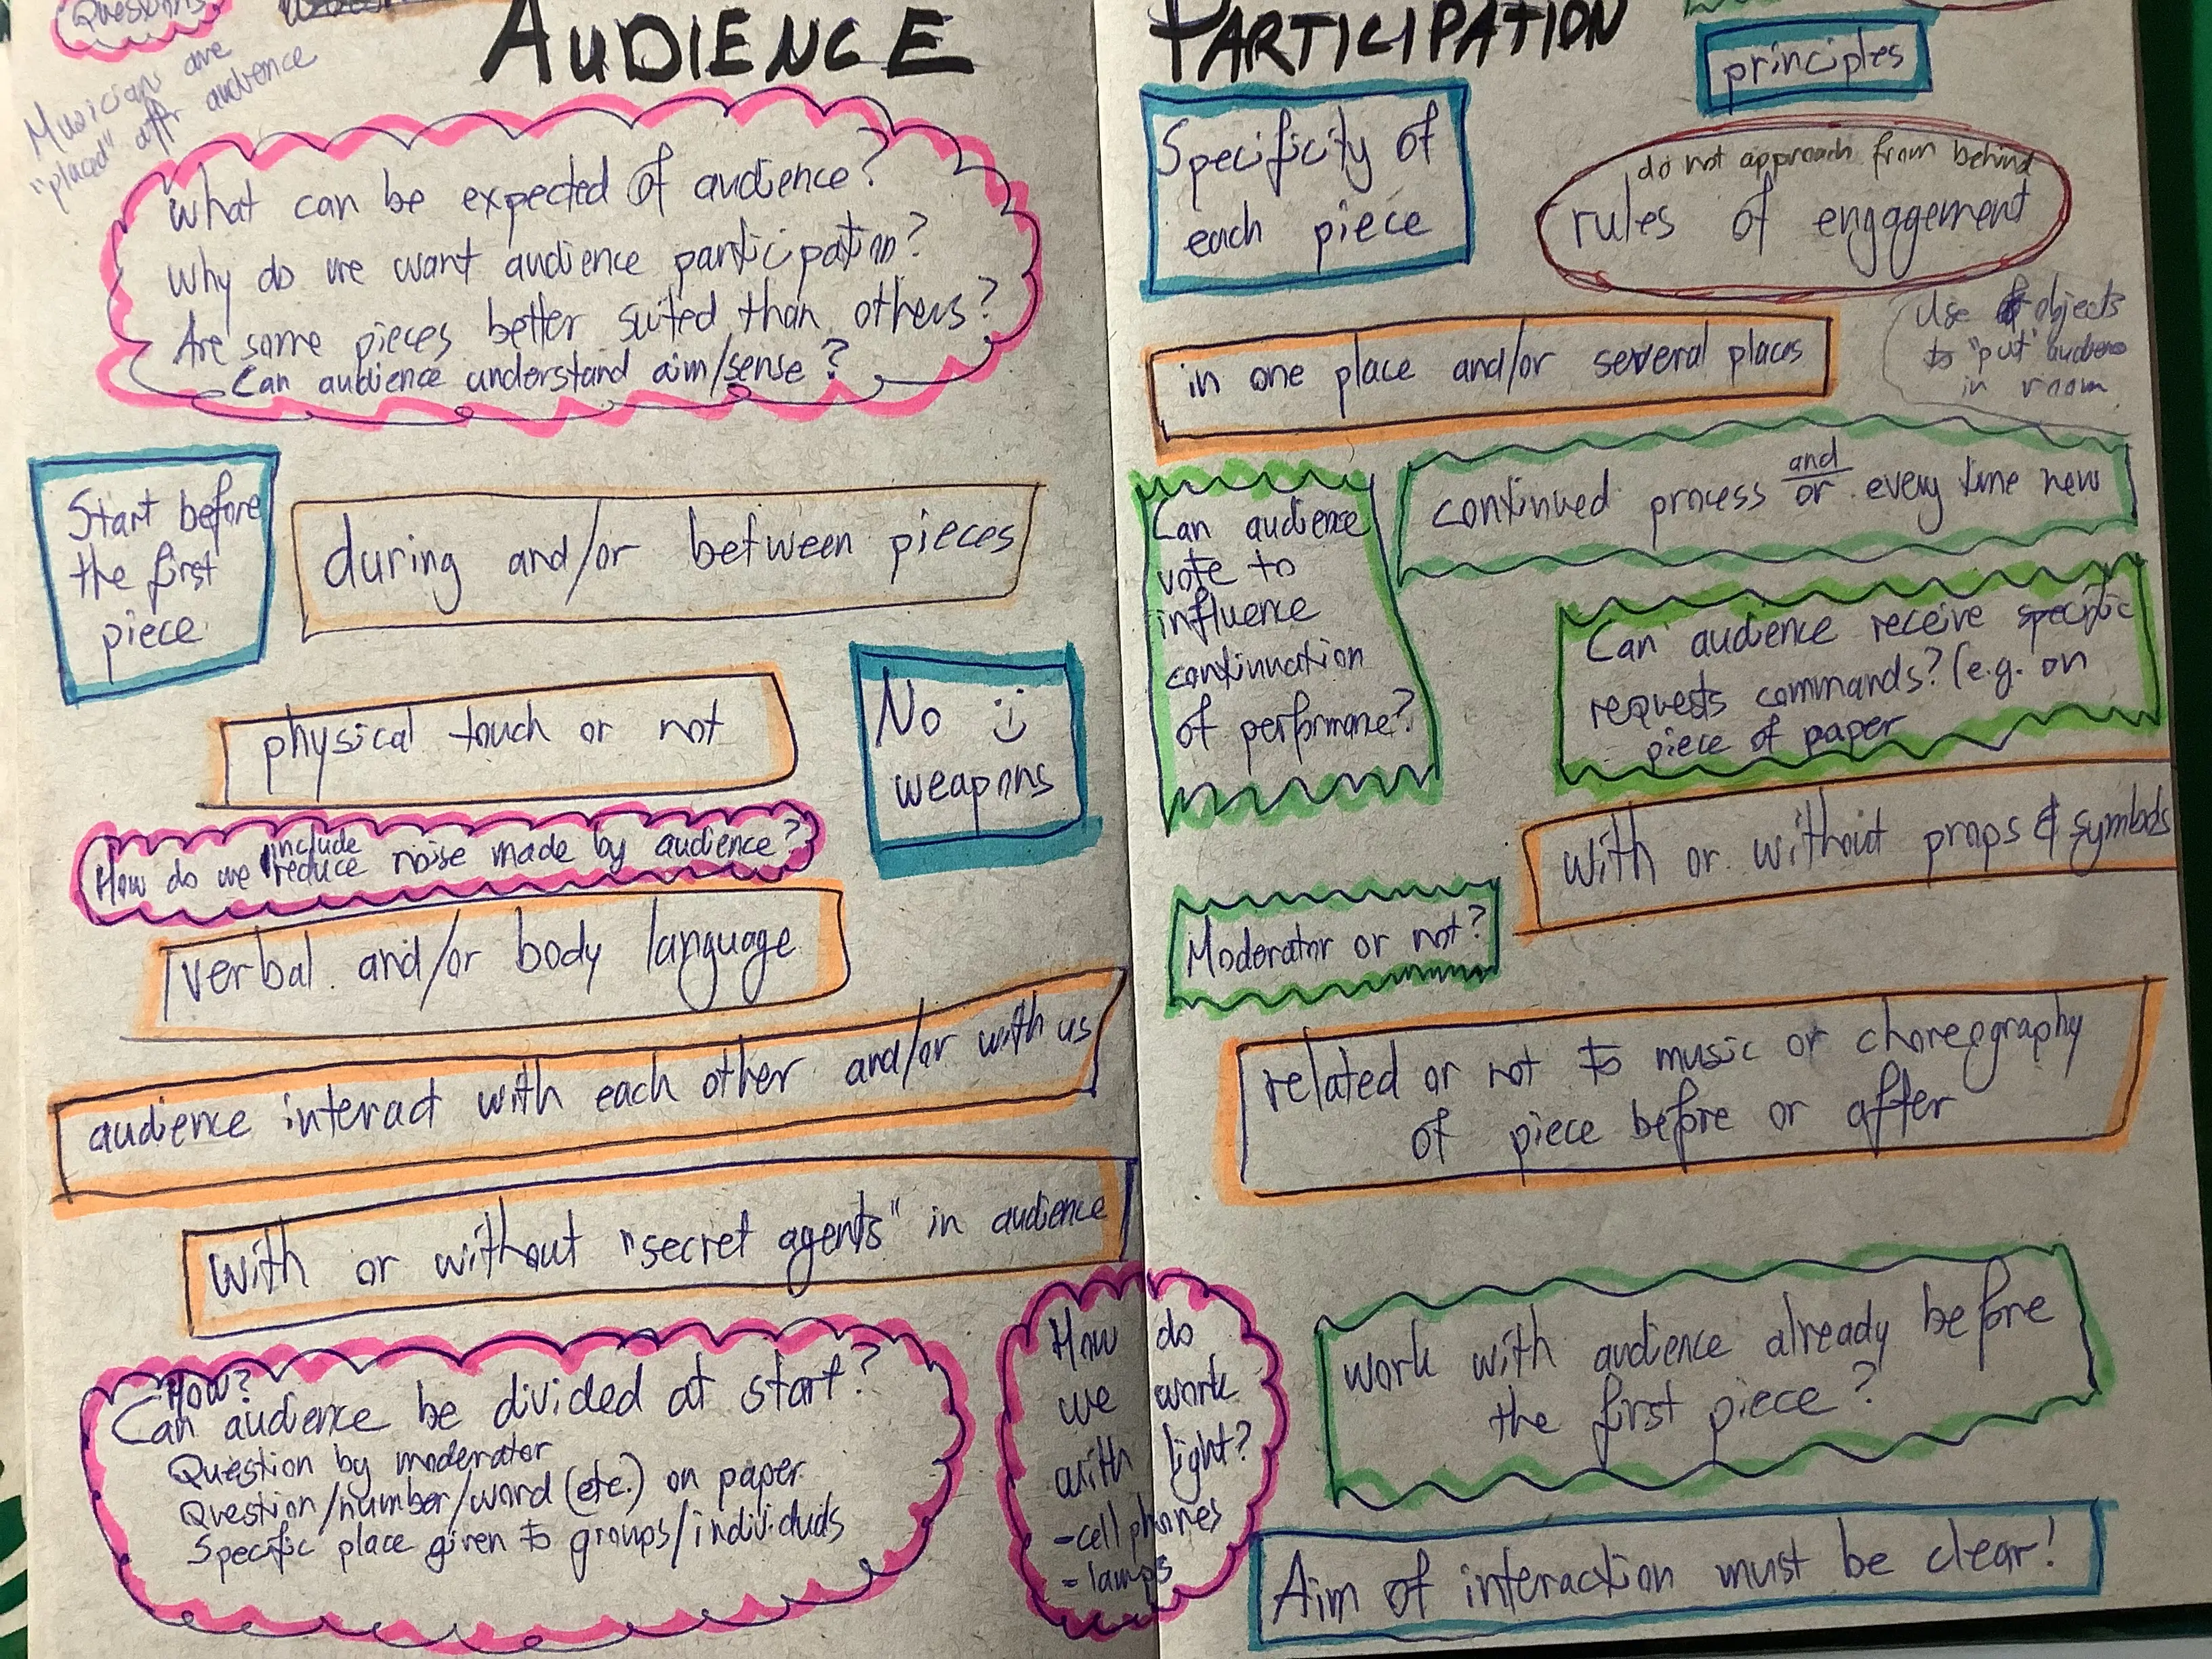 Questions
AUDIENCE
Musicians are
"placed" after audience
What can be expected of audience?
Why do we want audience participation?
Are some pieces better suited than others?
Can audience understand aim/sense?
Start before
the first
piece
during and/or between pieces
physical touch or not
No
weapons
include
How do we reduce noise made by audience?
verbal and/or body language
audience interact with each other and/or with us
With or without "secret agents" in audience
How?
Can audience be divided at start?
Question by moderator
Question/number/word (etc.) on paper
Specific place given to groups/individuals
How do
we work
with light?
-cell phones
-lamps
PARTICIPATION
principles
Specificity of
each piece
do not approach from behind
rules of engagement
in one place and/or several places
Use of objects
to "put" audience
in room
Can audience
vote to
influence
continuation
of performance?
continued process and/or every time new
Can audience receive specific
requests commands? (e.g. on
piece of paper
With or without props & symbols
Moderator or not?
related or not to music or choreography
of piece before or after
work with audience already before
the first piece?
Aim of interaction must be clear!